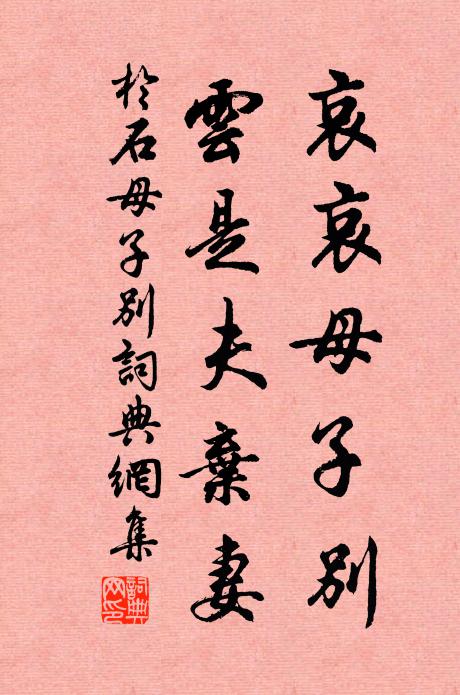 哀哀母子別
雲是夫棄妻
於石母子別詞典網集
詞典
网印